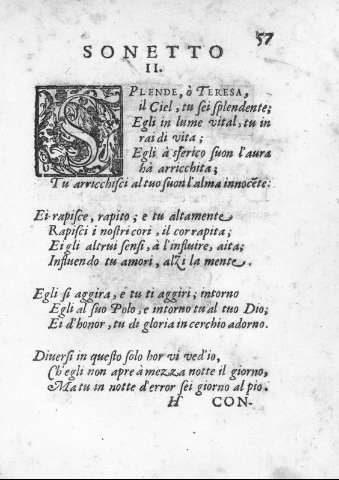 57
SONETTO
II.
SPLENDE, ò TERESA,
il Ciel, tu sei splendente;
Egli in lume vital, tu in
rai di vita;
Egli à sferico suon l'aura
hà arricchita;
Tu arricchisci al tuo suon l'alma innocẽte:
Ei rapisce, rapito; e tu altamente
Rapisci i nostri cori, il cor rapita;
Ei gli altrui sensi, à l'influire, aita;
Influendo tu amori, alzi la mente.
Egli si aggira, e tu ti aggiri; intorno
Egli al suo Polo, e intorno tu al tuo Dio;
Ei d'honor, tu di gloria in cerchio adorno.
Diversi in questo solo hor vi ved'io,
Ch'egli non apre à mezza notte il giorno,
Ma tu in notte d'error sei giorno al pio.
H CON-